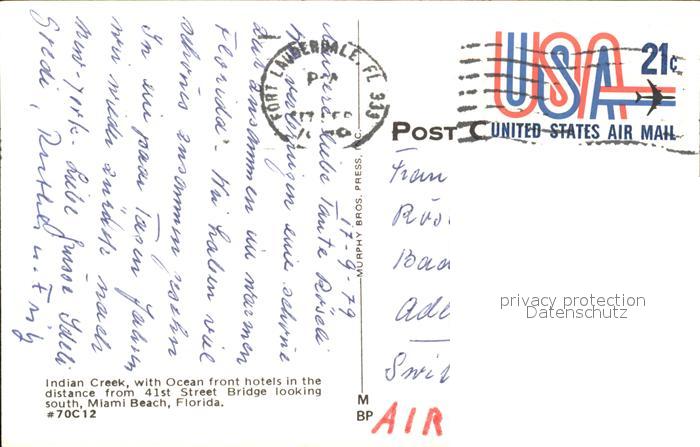 17-9-79
Meine liebe Tante Röseli
Wir verbringen eine schöne
Zeit zusammen im warmen
Florida. Wir haben viel
schönes zusammen gesehn
In ein paar Tagen fahren
wir wieder zurück nach
New-York. Liebe Grüsse
Gredi, u. Fritz
FORT LAUDERDALE, FL 333
PM
USA 21c
UNITED STATES AIR MAIL
POST C
MURPHY BROS. PRESS, INC.
Frau
Rös
Bad
Ade
Swit
privacy protection
Datenschutz
Indian Creek, with Ocean front hotels in the
distance from 41st Street Bridge looking
south, Miami Beach, Florida.
#70C12
M
BP
AIR